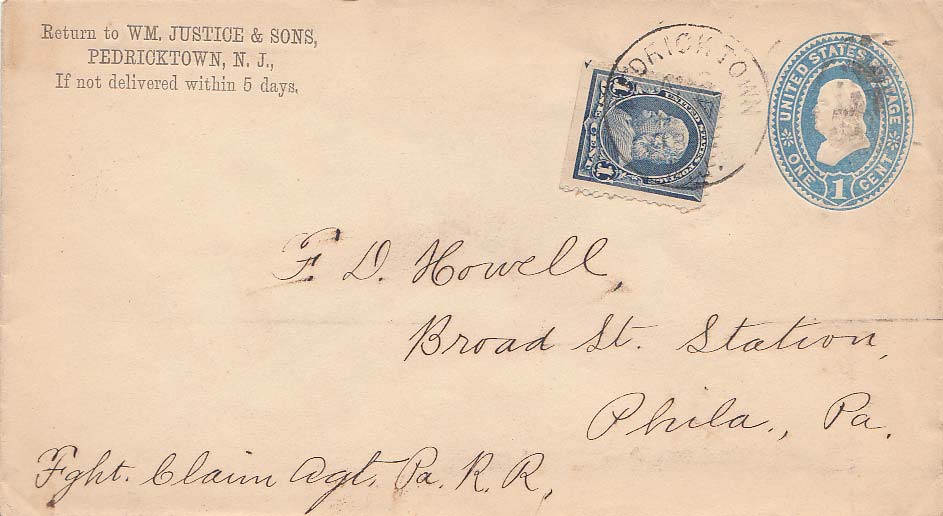 Return to WM. JUSTICE & SONS,
PEDRICKTOWN, N. J.,
If not delivered within 5 days.
DRICKTOWN
1 1
UNITED STATES POSTAGE
UNITED STATES POSTAGE
ONE 1 CENT
F. D. Howell,
Broad St. Station,
Phila., Pa.
Fght. Claim Agt. Pa. R. R.,